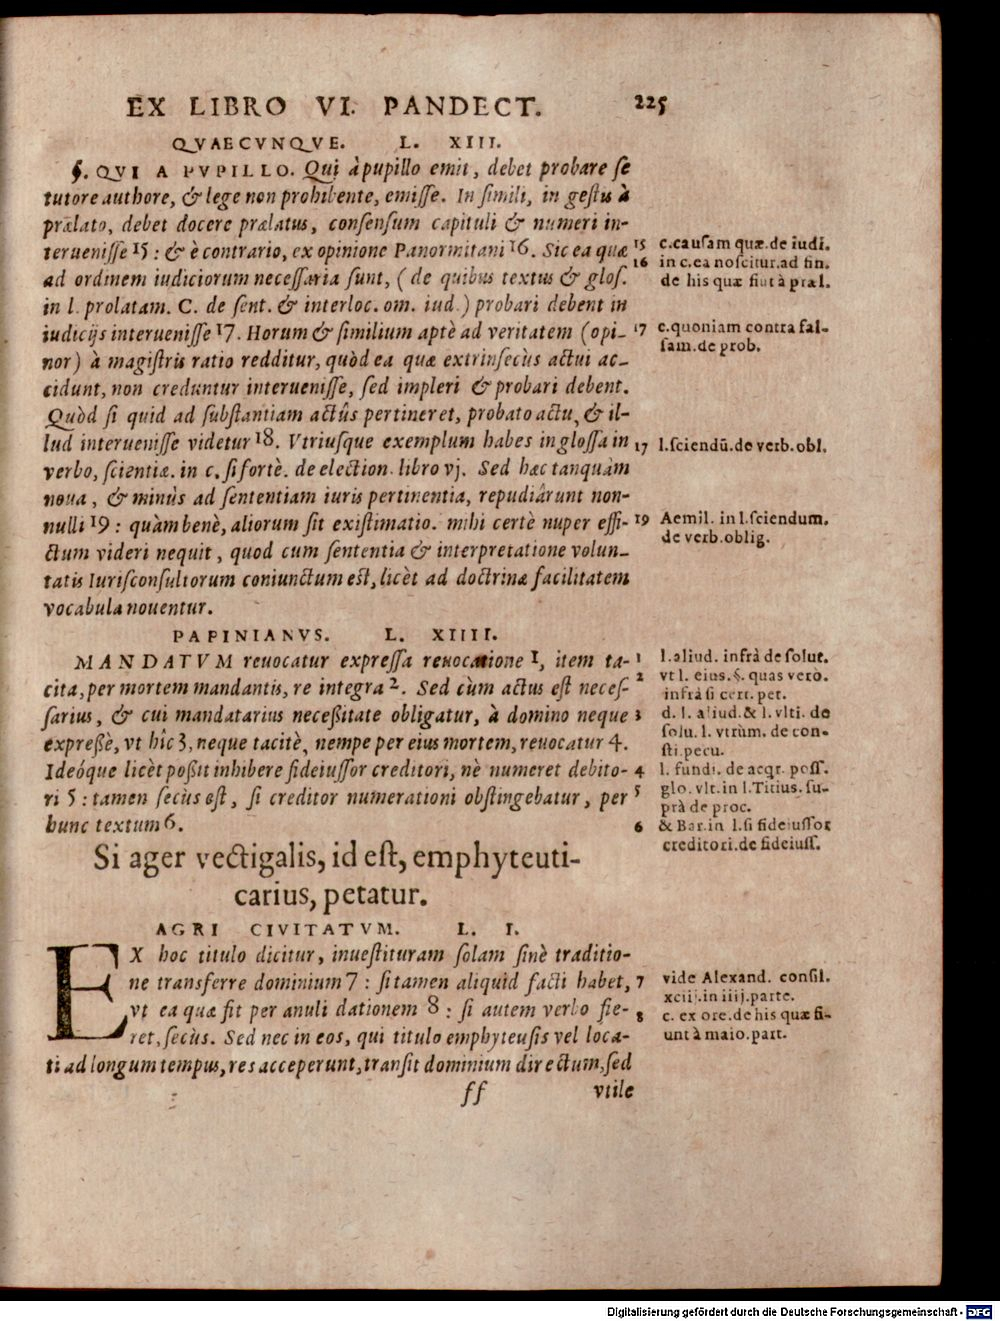 EX LIBRO VI. PANDECT. 225
QVAECVNQVE. L. XIII.
§. QVI A PVPILLO. Qui à pupillo emit, debet probare se
tutore authore, & lege non prohibente, emisse. In simili, in gestis à
prælato, debet docere prælatus, consensum capituli & numeri in-
teruenisse 15 : & è contrario, ex opinione Panormitani 16. Sic ea quæ
ad ordinem iudiciorum necessaria sunt, ( de quibus textus & glos.
in l. prolatam. C. de sent. & interloc. om. iud.) probari debent in
iudicijs interuenisse 17. Horum & similium aptè ad veritatem (opi-
nor) à magistris ratio redditur, quòd ea quæ extrinsecùs actui ac-
cidunt, non creduntur interuenisse, sed impleri & probari debent.
Quòd si quid ad substantiam actûs pertineret, probato actu, & il-
lud interuenisse videtur 18. Vtriusque exemplum habes in glossa in
verbo, scientiæ. in c. si fortè. de election. libro vj. Sed hæc tanquàm
noua, & minùs ad sententiam iuris pertinentia, repudiârunt non-
nulli 19 : quàm benè, aliorum sit existimatio. mihi certè nuper effi-
ctum videri nequit, quod cum sententia & interpretatione volun-
tatis Iurisconsultorum coniunctum est, licèt ad doctrinæ facilitatem
vocabula nouentur.
15 c.causam quæ.de iudi.
16 in c.ea noscitur.ad fin.
de his quæ fiut à præl.
17 c.quoniam contra fal-
sam.de prob.
17 l.sciendū.de verb.obl.
19 Aemil. in l.sciendum.
de verb.oblig.
PAPINIANVS. L. XIIII.
MANDATVM reuocatur expressa reuocatione 1, item ta-
cita, per mortem mandantis, re integra 2. Sed cùm actus est neces-
sarius, & cui mandatarius necessitate obligatur, à domino neque
expressè, vt hîc 3, neque tacitè, nempe per eius mortem, reuocatur 4.
Ideóque licèt possit inhibere fideiussor creditori, nè numeret debito-
ri 5 : tamen secùs est, si creditor numerationi obstingebatur, per
hunc textum 6.
1 l.aliud. infrà de solut.
2 vt l. eius.§. quas vero.
infrà si cert. pet.
3 d. l. aliud.& l. vlti. de
solu. l. vtrùm. de con-
sti.pecu.
4 l. fundi. de acqr. poss.
5 glo. vlt. in l.Titius. su-
prà de proc.
6 & Bar.in l.si fideiussor
creditori.de fideiuss.
Si ager vectigalis, id est, emphyteuti-
carius, petatur.
AGRI CIVITATVM. L. I.
EX hoc titulo dicitur, inuestituram solam sinè traditio-
ne transferre dominium 7 : si tamen aliquid facti habet,
vt ea quæ fit per anuli dationem 8 : si autem verbo fie-
ret, secùs. Sed nec in eos, qui titulo emphyteusis vel loca-
ti ad longum tempus, res acceperunt, transit dominium directum, sed
7 vide Alexand. consil.
xciij.in iiij.parte.
8 c. ex ore.de his quæ fi-
unt à maio.part.
ff vtile
Digitalisierung gefördert durch die Deutsche Forschungsgemeinschaft - DFG